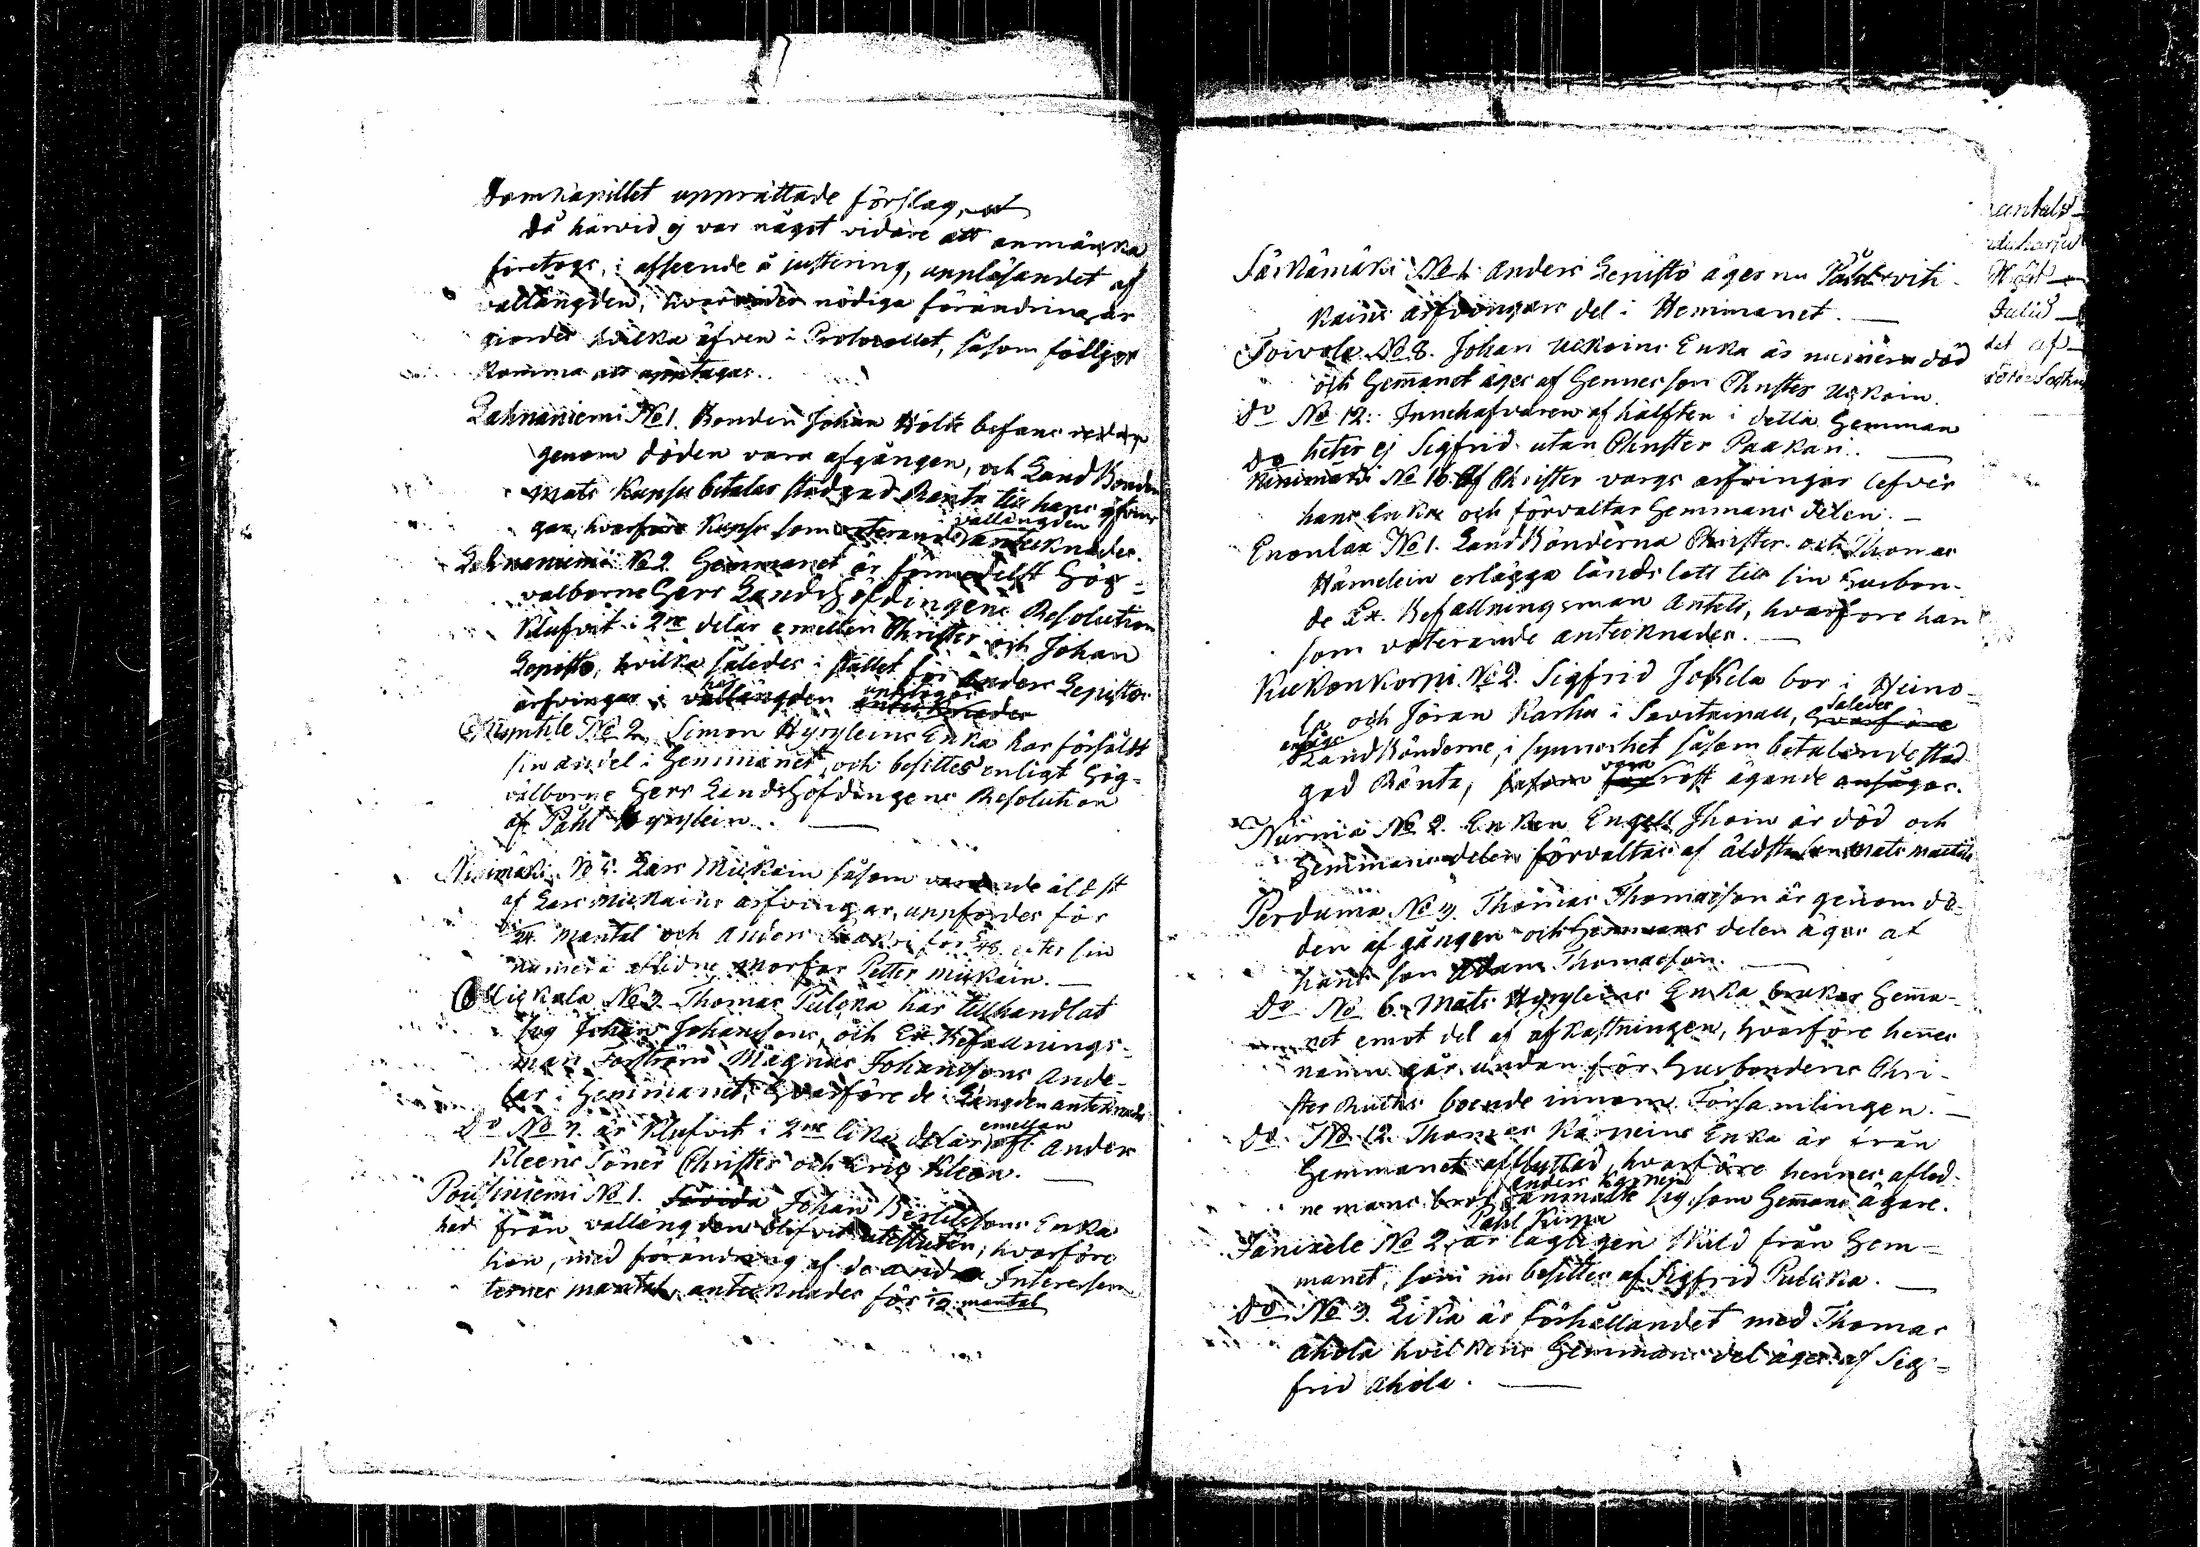 Domkapillet upprättade förslag,
Då härvid ej var något vidare att anmärka
företogs, i afseende å justering, uppläsandet af
vallängden, hvarvider nödiga förändringar
giordes hvilka äfven i Protocollet, såsom följer
komma att upptagas.
Lahnaniemi No 1. Bonden Johan Hölte befans redan
genom döden vara afgången, och Land Bonden
Mats Kupsu betalar stadgad Ranta till hans arfvin-
gar, hvarföre Kupsu som voterande i vällängden antecknades.
Lahnaniemi No 2. Hemmanet är förmedelst Hög-
välborne Herr Landshöfdingens Resolution
klufvit i 2ne delar emellan Christer och Johan
Lepistö, hvilka således i stället för Anders Lepistös
arfvingar i vallängden antecknades
No 2. Simon Hyryleins Enka har försåldt
sin andel i Hemmanet, och besittes enligt Hög-
välborne Herr Landshöfdingens Resolution
af Påhl Hyrylein.
Niinimäki No 5. Lars Mickain såsom varande äldst
af Lars Mickains arfvingar, uppfördes för
mantal och Anders för 1/48 efter sin
numera aflidne morfar Petter Mickain.
Mickala No 3. Thomas Pulcka har tillhandlat
sig Johan Johanssons, och Ex. Befallnings-
man Forström Magnus Johanssons Ande-
lar i Hemmanet, hvarföre de i Längden antecknades
Do No 7. är klufvit i 2ne lika delar emellan afl. Anders
Kleens Söner Christer och Eric Kleen.
Poitsiniemi No 1. Såvida Johan Bertilssons Enka
had från vallängden blifvit utesluten, hvarföre
hon, med förändring af de andra Interessen-
ternes mantal, antecknades för 1/12 mantal
Särkämäki No 1. Anders Lepistö äger nu Påhl
kains arfvingars del i Hemmanet.
Toivola No 8. Johan Uckoins Enka är numera död
och Hemmanet äges af Hennes son Christer Uckoin.
do No 12. Innehafvaren af hälften i detta Hemman
heter ej Sigfrid utan Christer Paakari.
Do
Niinimäki No 16. Af Christer Vargs arfvingar lefver
hans Enka och förvaltar Hemmans delen.
Enonlax No 1. Land Bönderna Christer och Thomas
Hämelein erlägga landslott till sin Husbon-
de Ex. Befallningsman Antell, hvarföre han
som voterande antecknades.
Kuckonkorpi No 2. Sigfrid Jokela bor i Heino-
la och Jöran Karhu i Savitaipall, således hvarföre
ansågs Land Bönderne, i synnerhet såsom betalande stad-
gad Ränta, såsom vara för röst ägande ansågos.
Närniä No 2. Enkan Engell Ihain är död och
Hemmans delen förvaltas af äldsta son Mats
Perdumä No 4. Thomas Thomasson är genom dö-
den afgången och Hemmans delen äges af
hans son Adam Thomasson.
Do No 6. Mats Hyryleins Enka brukar Hema-
net emot del af afkastningen, hvarföre henes
namn går undan för Husbondens Chri-
ster Ruuths boende innom Församlingen.
do. No. 12. Thomas Kärpeins Enka är från
Hemmanet afflyttad, hvarföre hennes aflid-
ne mans bror Anders Kärpein anmälte sig, som Hemans ägare.
Jänixele No 2. Påhl Kimpa är lagligen skild från Hem-
manet, som nu besittes af Sigfrid Pulcka.
Do No 3. Lika är förhållandet med Thomas
Ahola hvilkens Hemmans del äges af Sig-
frid Ahola.